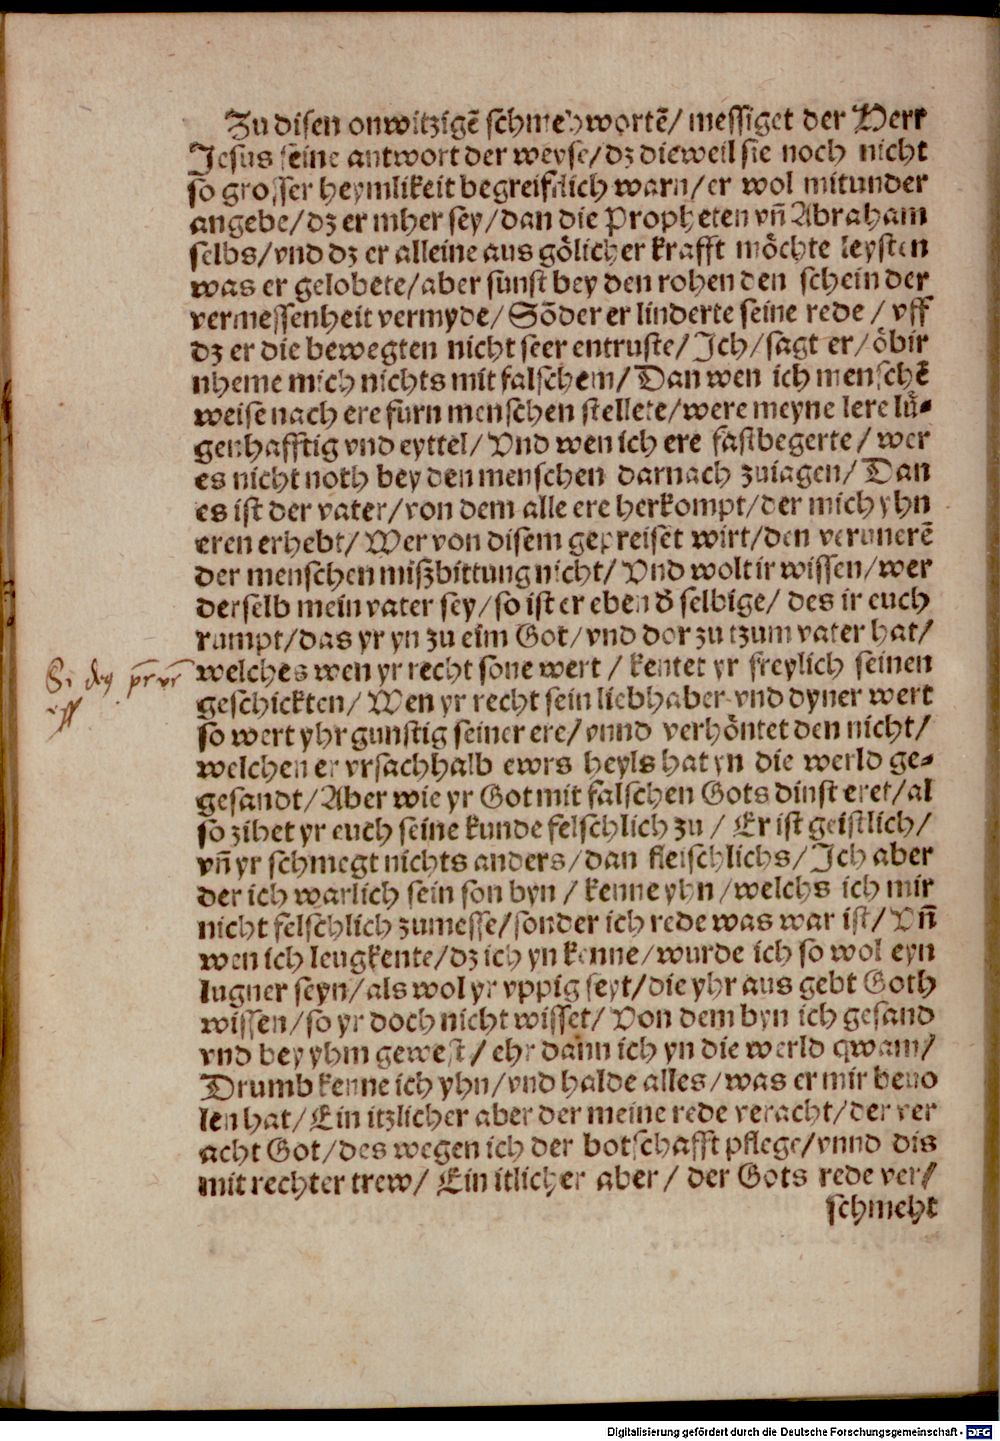 Zu disen onwitzigē schmehwortē/ messiget der Herr
Jesus seine antwort der weyse/ dz dieweil sie noch nicht
so grosser heymlikeit begreifflich warn/ er wol mitunder
angebe/ dz er mher sey/ dan die Propheten vn̄ Abraham
selbs/ vnd dz er alleine aus gölicher krafft möchte leysten
was er gelobete/ aber sunst bey den rohen den schein der
vermessenheit vermyde/ Sōder er linderte seine rede / vff
dz er die bewegten nicht seer entruste/ Ich/ sagt er/ öbir
nheme mich nichts mit falschem/ Dan wen ich menschē
weise nach ere furn menschen stellete/ were meyne lere lů⸗
genhafftig vnd eyttel/ Vnd wen ich ere fastbegerte / wer
es nicht noth bey den menschen darnach zuiagen/ Dan
es ist der vater/ von dem alle ere herkompt/ der mich yhn
eren erhebt/ Wer von disem gepreiset wirt/ den verunerē
der menschen mißbittung nicht/ Vnd wolt ir wissen/ wer
derselb mein vater sey/ so ist er eben d̓ selbige/ des ir euch
rumpt/ das yr yn zu eim Got/ vnd dor zu tzum vater hat/
welches wen yr recht sone wert / kentet yr freylich seinen
geschickten/ Wen yr recht sein liebhaber vnd dyner wert
so wert yhr gunstig seiner ere/ vnnd verhöntet den nicht/
welchen er vrsachhalb ewrs heyls hat yn die werld ge⸗
gesandt/ Aber wie yr Got mit falschen Gots dinst eret/ al
so zihet yr euch seine kunde felschlich zu / Er ist geistlich/
vn̄ yr schmegt nichts anders/ dan fleischlichs/ Ich aber
der ich warlich sein son byn / kenne yhn / welchs ich mir
nicht felschlich zumesse/ sonder ich rede was war ist/ Vn̄
wen ich leugkente/ dz ich yn kenne/ wurde ich so wol eyn
lugner seyn/ als wol yr vppig seyt/ die yhr aus gebt Goth
wissen/ so yr doch nicht wisset/ Von dem byn ich gesand
vnd bey yhm gewest/ ehr dann ich yn die werld qwam/
Drumb kenne ich yhn/ vnd halde alles/ was er mir beuo
len hat/ Ein itzlicher aber der meine rede veracht/ der ver
acht Got/ des wegen ich der botschafft pflege/ vnnd dis
mit rechter trew/ Ein itlicher aber/ der Gots rede ver/
schmeht
Digitalisierung gefördert durch die Deutsche Forschungsgemeinschaft - DFG